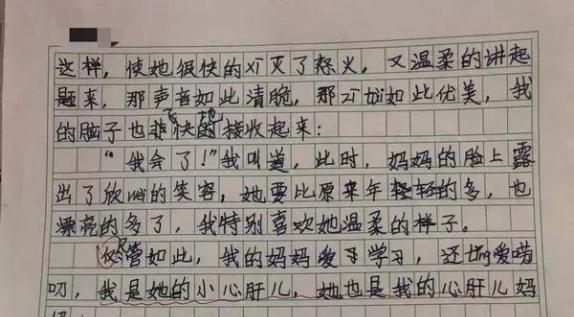 这样，使她很快的xī灭了怒火，又温柔的讲起
题来，那声音如此清脆，那zī tài如此优美，我
的脑子也飞快地接收起来：
“我会了！”我叫道，此时，妈妈的脸上露
出了欣wèi的笑容，她要比原来年轻的多，也
漂亮的多了，我特别喜欢她温柔的样子。
尽管如此，我的妈妈爱学习，还tǐng爱唠
叨，我是她的小心肝儿，她也是我的心肝儿妈